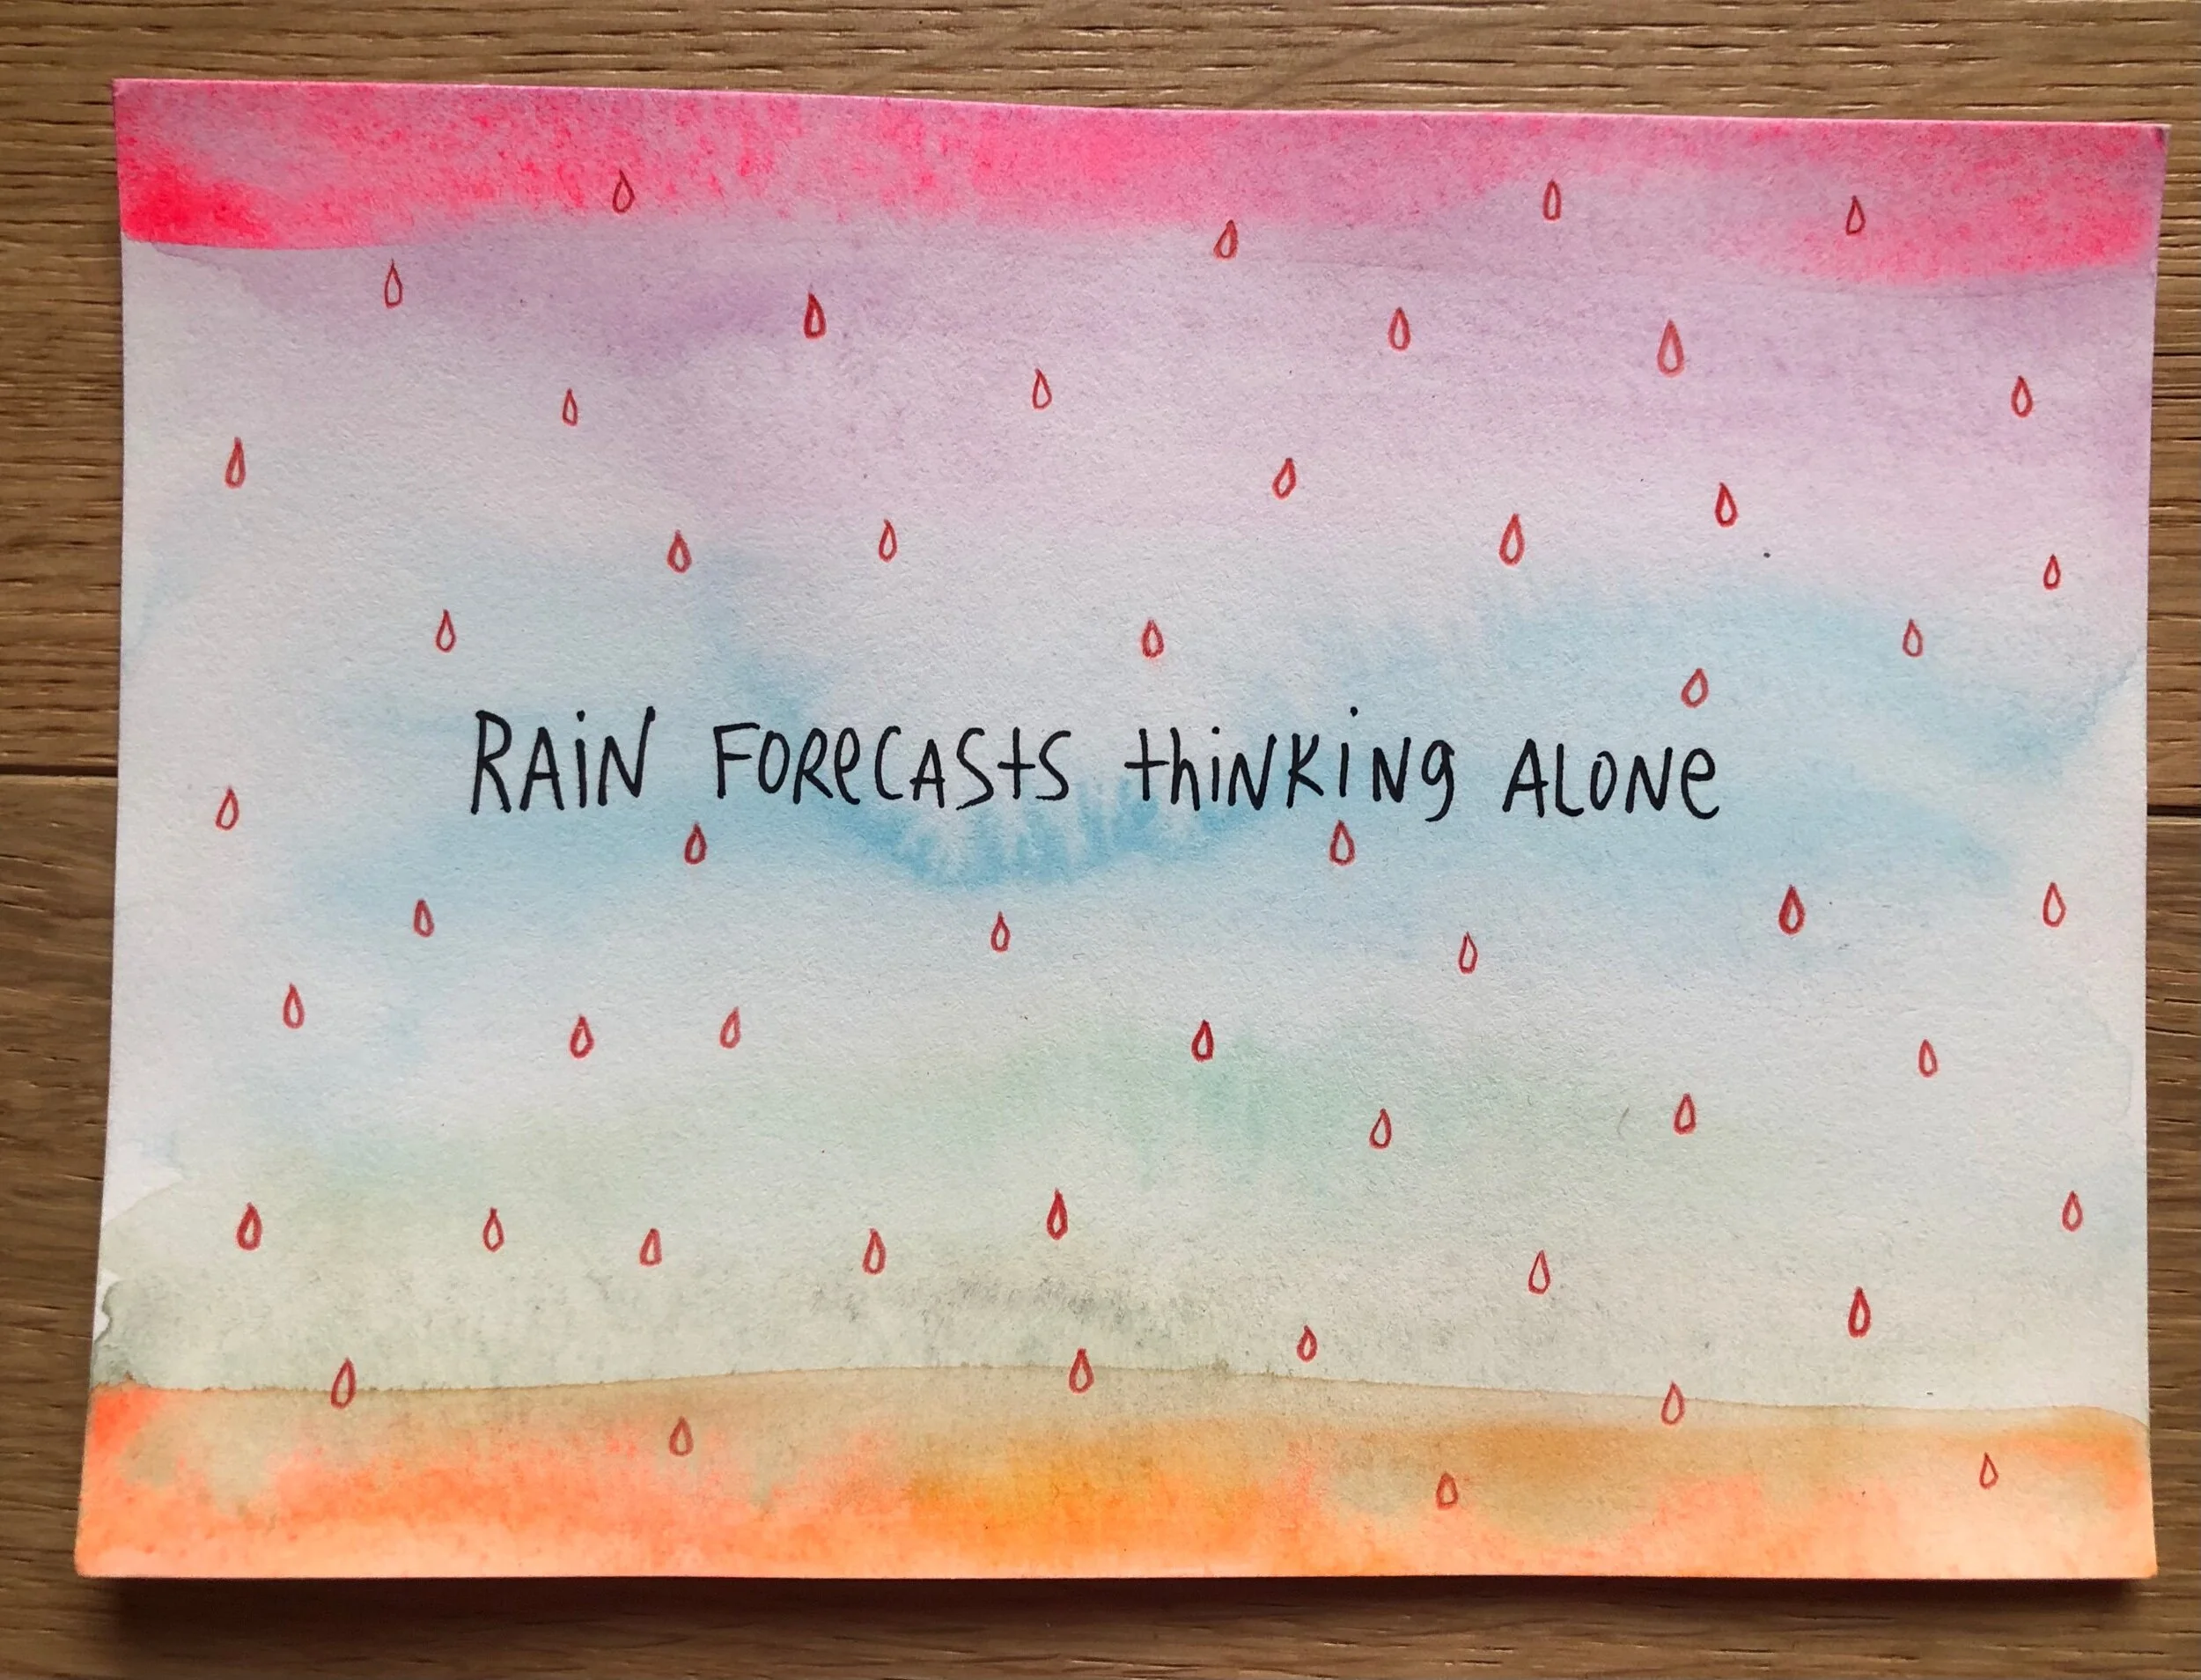 RAiN FORecASts thiNKiNg ALONe